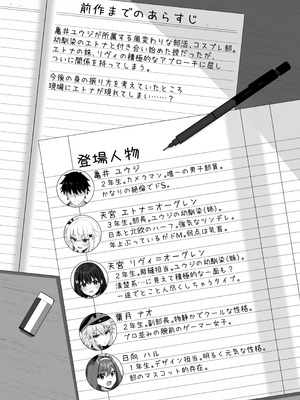 前作までのあらすじ
亀井ユウジが所属する風変わりな部活、コスプレ部。
幼馴染のエトナと付き合い始めた彼だったが、
エトナの妹、リヴィの積極的なアプローチに屈し
ついに関係を持ってしまう。
今後の身の振り方を考えていたところ
現場にエトナが現れてしまい……？
登場人物
亀井 ユウジ
2年生。カメラマン。唯一の男子部員。
かなりの絶倫でドS。
天宮 エトナ＝オーグレン
3年生。部長。ユウジの幼馴染(姉)。
日本と北欧のハーフ。強気なツンデレ。
年上ぶっているがドM。弱点は乳首。
天宮 リヴィ＝オーグレン
2年生。裁縫担当。ユウジの幼馴染(妹)。
清楚系…に見えて積極的な一面も？
一途でとことん尽くしちゃうタイプ。
葉月 ナオ
2年生。副部長。物静かでクールな性格。
プロ並みの腕前のゲーマー女子。
日向 ハル
1年生。デザイン担当。明るく元気な性格。
部のマスコット的存在。